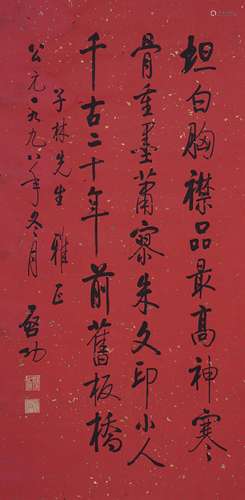 坦白胸襟品最高神寒
骨重墨蕭寥朱文印小人
千古二十年前舊板橋
子林先生雅正
公元一九九八年冬月
啟功